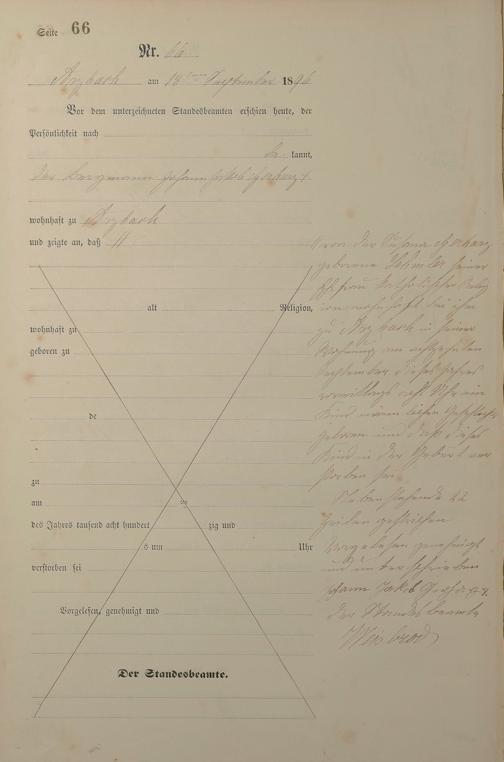 Seite 66
Nr. 66
Arzbach am 18ten September 1896
Vor dem unterzeichneten Standesbeamten erschien heute, der
Persönlichkeit nach
be kannt,
der Bergmann Johann Jakob Gerharz
wohnhaft zu Arzbach
und zeigte an, daß
alt Religion,
wohnhaft zu
geboren zu
de
zu
am ten
des Jahres tausend acht hundert zig und
s um Uhr
verstorben sei
Vorgelesen, genehmigt und
Der Standesbeamte.
von der Susana Gerharz
geborene seiner
Ehefrau katholischer Reli
gion wohnhaft bei ihm
zu Arzbach in seiner
Wohnung am achtzehnten
September dieses Jahres
vormittags acht Uhr ein
Kind männlichen Geschlechts
geboren und daß dieses
Kind in der Geburt ver
storben sei
Nebenstehende 22
Zeilen gestrichen
Vorgelesen genehmigt
und unterschrieben
Johann Jakob Gerharz
Der Standesbeamte